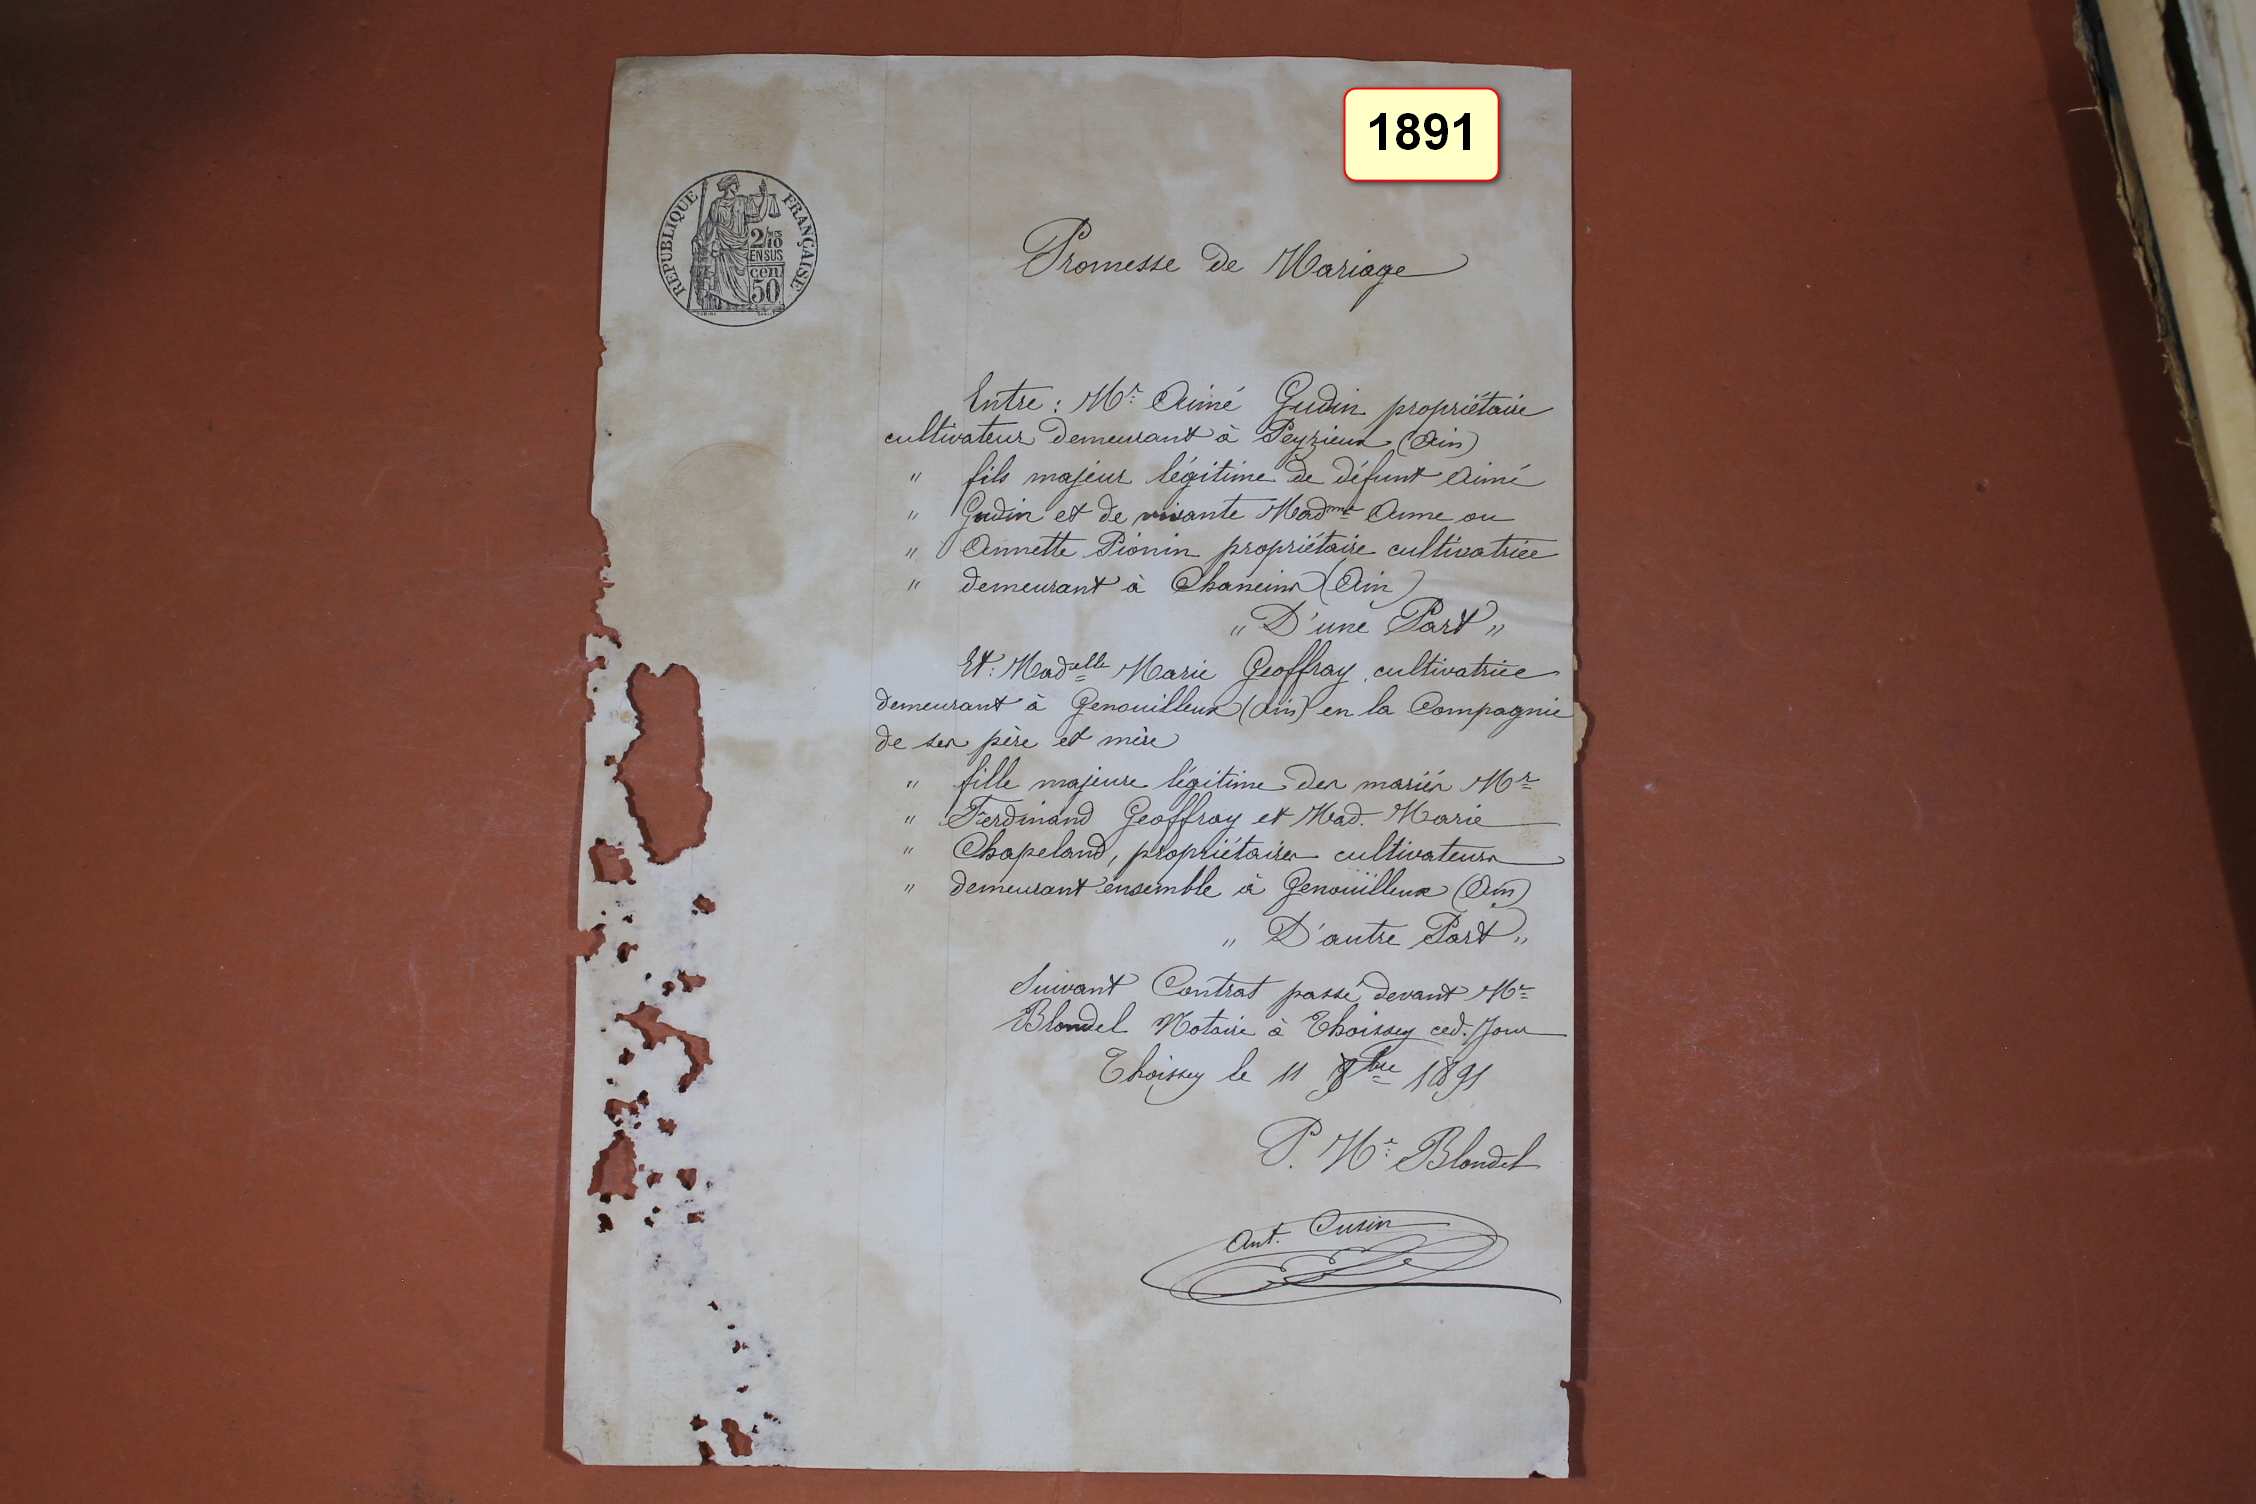 1891
REPUBLIQUE FRANÇAISE
2/10
EN SUS
cen
50
Promesse de Mariage
Entre : Mr Aimé Gudin propriétaire
cultivateur demeurant à Peyzieux (Ain)
" fils majeur légitime de défunt Aimé
" Gudin et de vivante Madme Anne ou
" Annette Pionin propriétaire cultivatrice
" demeurant à Chaneins (Ain)
" D'une Part "
Et : Madelle Marie Geoffray cultivatrice
demeurant à Genouilleux (Ain) en la Compagnie
de ses père et mère
" fille majeure légitime des mariés Mr
" Ferdinand Geoffray et Mad. Marie
" Chapeland, propriétaires cultivateurs
" demeurant ensemble à Genouilleux (Ain)
" D'autre Part "
Suivant Contrat passé devant Me
Blondel Notaire à Thoissey ced. Jour
Thoissey le 11 8bre 1891
P. Me Blondel
Ant. Cusin